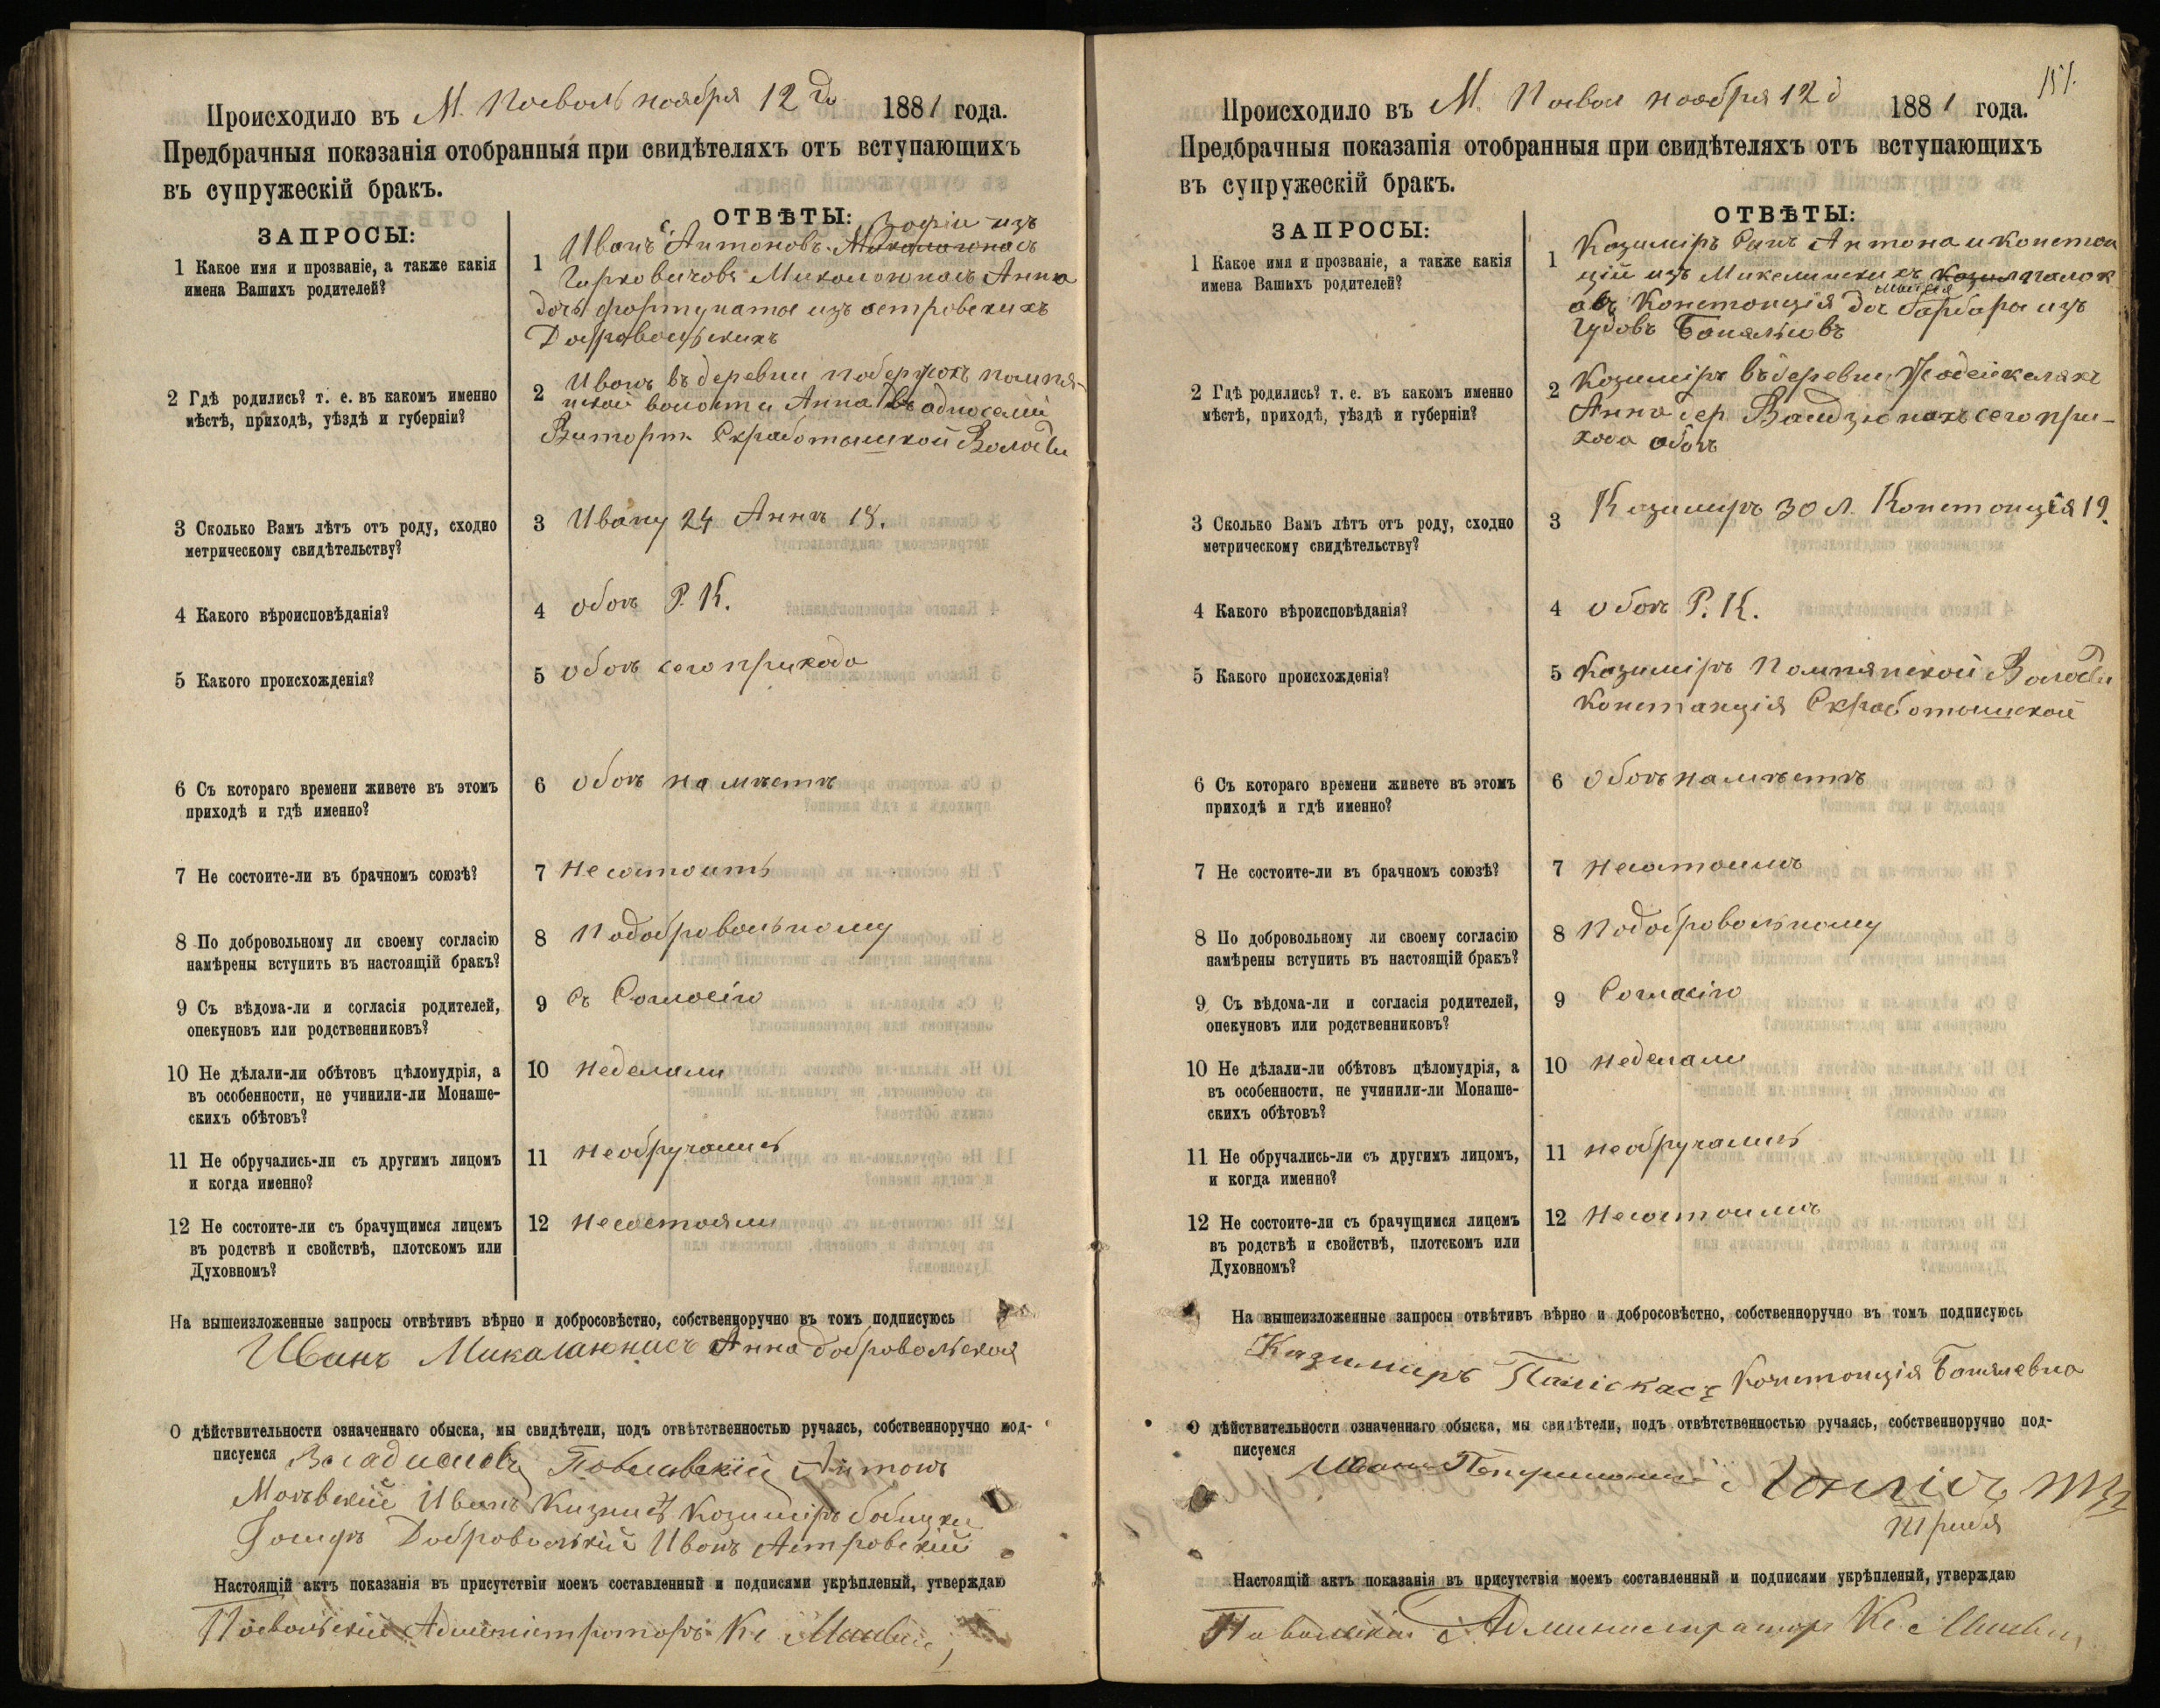 Происходило въ М. Посволь ноября 12 го 1881 года.
Предбрачныя показанія отобранныя при свидѣтеляхъ отъ вступающихъ
въ супружескій бракъ.
ЗАПРОСЫ:
ОТВѢТЫ:
1 Какое имя и прозваніе, а также какія
имена Вашихъ родителей?
1 Иванъ с Антоновъ Зофіи изъ
Миколоюнось Анна
дочь фортуната изъ астровскихъ
Добровольскихъ
2 Гдѣ родились? т. е. въ какомъ именно
мѣстѣ, приходѣ, уѣздѣ и губерніи?
2 Иванъ въ деревни помпя-
нской волости Анна въ
Скработишкой Волости
3 Сколько Вамъ лѣтъ отъ роду, сходно
метрическому свидѣтельству?
3 Ивану 24 Аннѣ 18.
4 Какого вѣроисповѣданія?
4 обоѣ Р. К.
5 Какого происхожденія?
5 обоѣ сего прихода
6 Съ котораго времени живете въ этомъ
приходѣ и гдѣ именно?
6 обоѣ на мѣстѣ
7 Не состоите-ли въ брачномъ союзѣ?
7 несостоитъ
8 По добровольному ли своему согласію
намѣрены вступить въ настоящій бракъ?
8 подобровольному
9 Съ вѣдома-ли и согласія родителей,
опекуновъ или родственниковъ?
9 Съ Согласію
10 Не дѣлали-ли обѣтовъ цѣломудрія, а
въ особенности, не учинили-ли Монаше-
скихъ обѣтовъ?
10 неделали
11 Не обручались-ли съ другимъ лицомъ
и когда именно?
11 необручались
12 Не состоите-ли съ брачущимся лицемъ
въ родствѣ и свойствѣ, плотскомъ или
Духовномъ?
12 несостояли
На вышеизложенные запросы отвѣтивъ вѣрно и добросовѣстно, собственноручно въ томъ подписуюсь
Иванъ Микалаюнасъ Анна добровольская
О дѣйствительности означеннаго обыска, мы свидѣтели, подъ отвѣтственностью ручаясь, собственноручно под-
писуемся Антонъ
Иванъ Казимиръ
Добровольскій Иванъ Астровскій
Настоящій актъ показанія въ присутствіи моемъ составленный и подписями укрѣпленый, утверждаю
Посвольскій Администраторъ Кс
151.
Происходило въ М. Посвол ноября 12 д 1881 года.
Предбрачныя показанія отобранныя при свидѣтеляхъ отъ вступающихъ
въ супружескій бракъ.
ЗАПРОСЫ:
ОТВѢТЫ:
1 Какое имя и прозваніе, а также какія
имена Вашихъ родителей?
1 Казимиръ Сынъ Антона и констан
ціи изъ
Констонція доч барбара изъ
2 Гдѣ родились? т. е. въ какомъ именно
мѣстѣ, приходѣ, уѣздѣ и губерніи?
2 Казимиръ въ деревни
Анна дер. сего при-
хода обоѣ
3 Сколько Вамъ лѣтъ отъ роду, сходно
метрическому свидѣтельству?
3 Казимиръ 30 л. Констонція 19.
4 Какого вѣроисповѣданія?
4 обоѣ Р. К.
5 Какого происхожденія?
5 Казимиръ Помпянской Волости
Констанція Скработишской
6 Съ котораго времени живете въ этомъ
приходѣ и гдѣ именно?
6 обоѣ на мѣстѣ
7 Не состоите-ли въ брачномъ союзѣ?
7 несотоимъ
8 По добровольному ли своему согласію
намѣрены вступить въ настоящій бракъ?
8 подобровольному
9 Съ вѣдома-ли и согласія родителей,
опекуновъ или родственниковъ?
9 Согласію
10 Не дѣлали-ли обѣтовъ цѣломудрія, а
въ особенности, не учинили-ли Монаше-
скихъ обѣтовъ?
10 неделали
11 Не обручались-ли съ другимъ лицомъ,
и когда именно?
11 необручались
12 Не состоите-ли съ брачущимся лицемъ
въ родствѣ и свойствѣ, плотскомъ или
Духовномъ?
12 несотоимъ
На вышеизложенные запросы отвѣтивъ вѣрно и добросовѣстно, собственноручно въ томъ подписуюсь
Казимиръ Констонція
О дѣйствительности означеннаго обыска, мы свидѣтели, подъ отвѣтственностью ручаясь, собственноручно под-
писуемся
Настоящій актъ показанія въ присутствія моемъ составленный и подписями укрѣпленый, утверждаю
Администраторъ Кс.